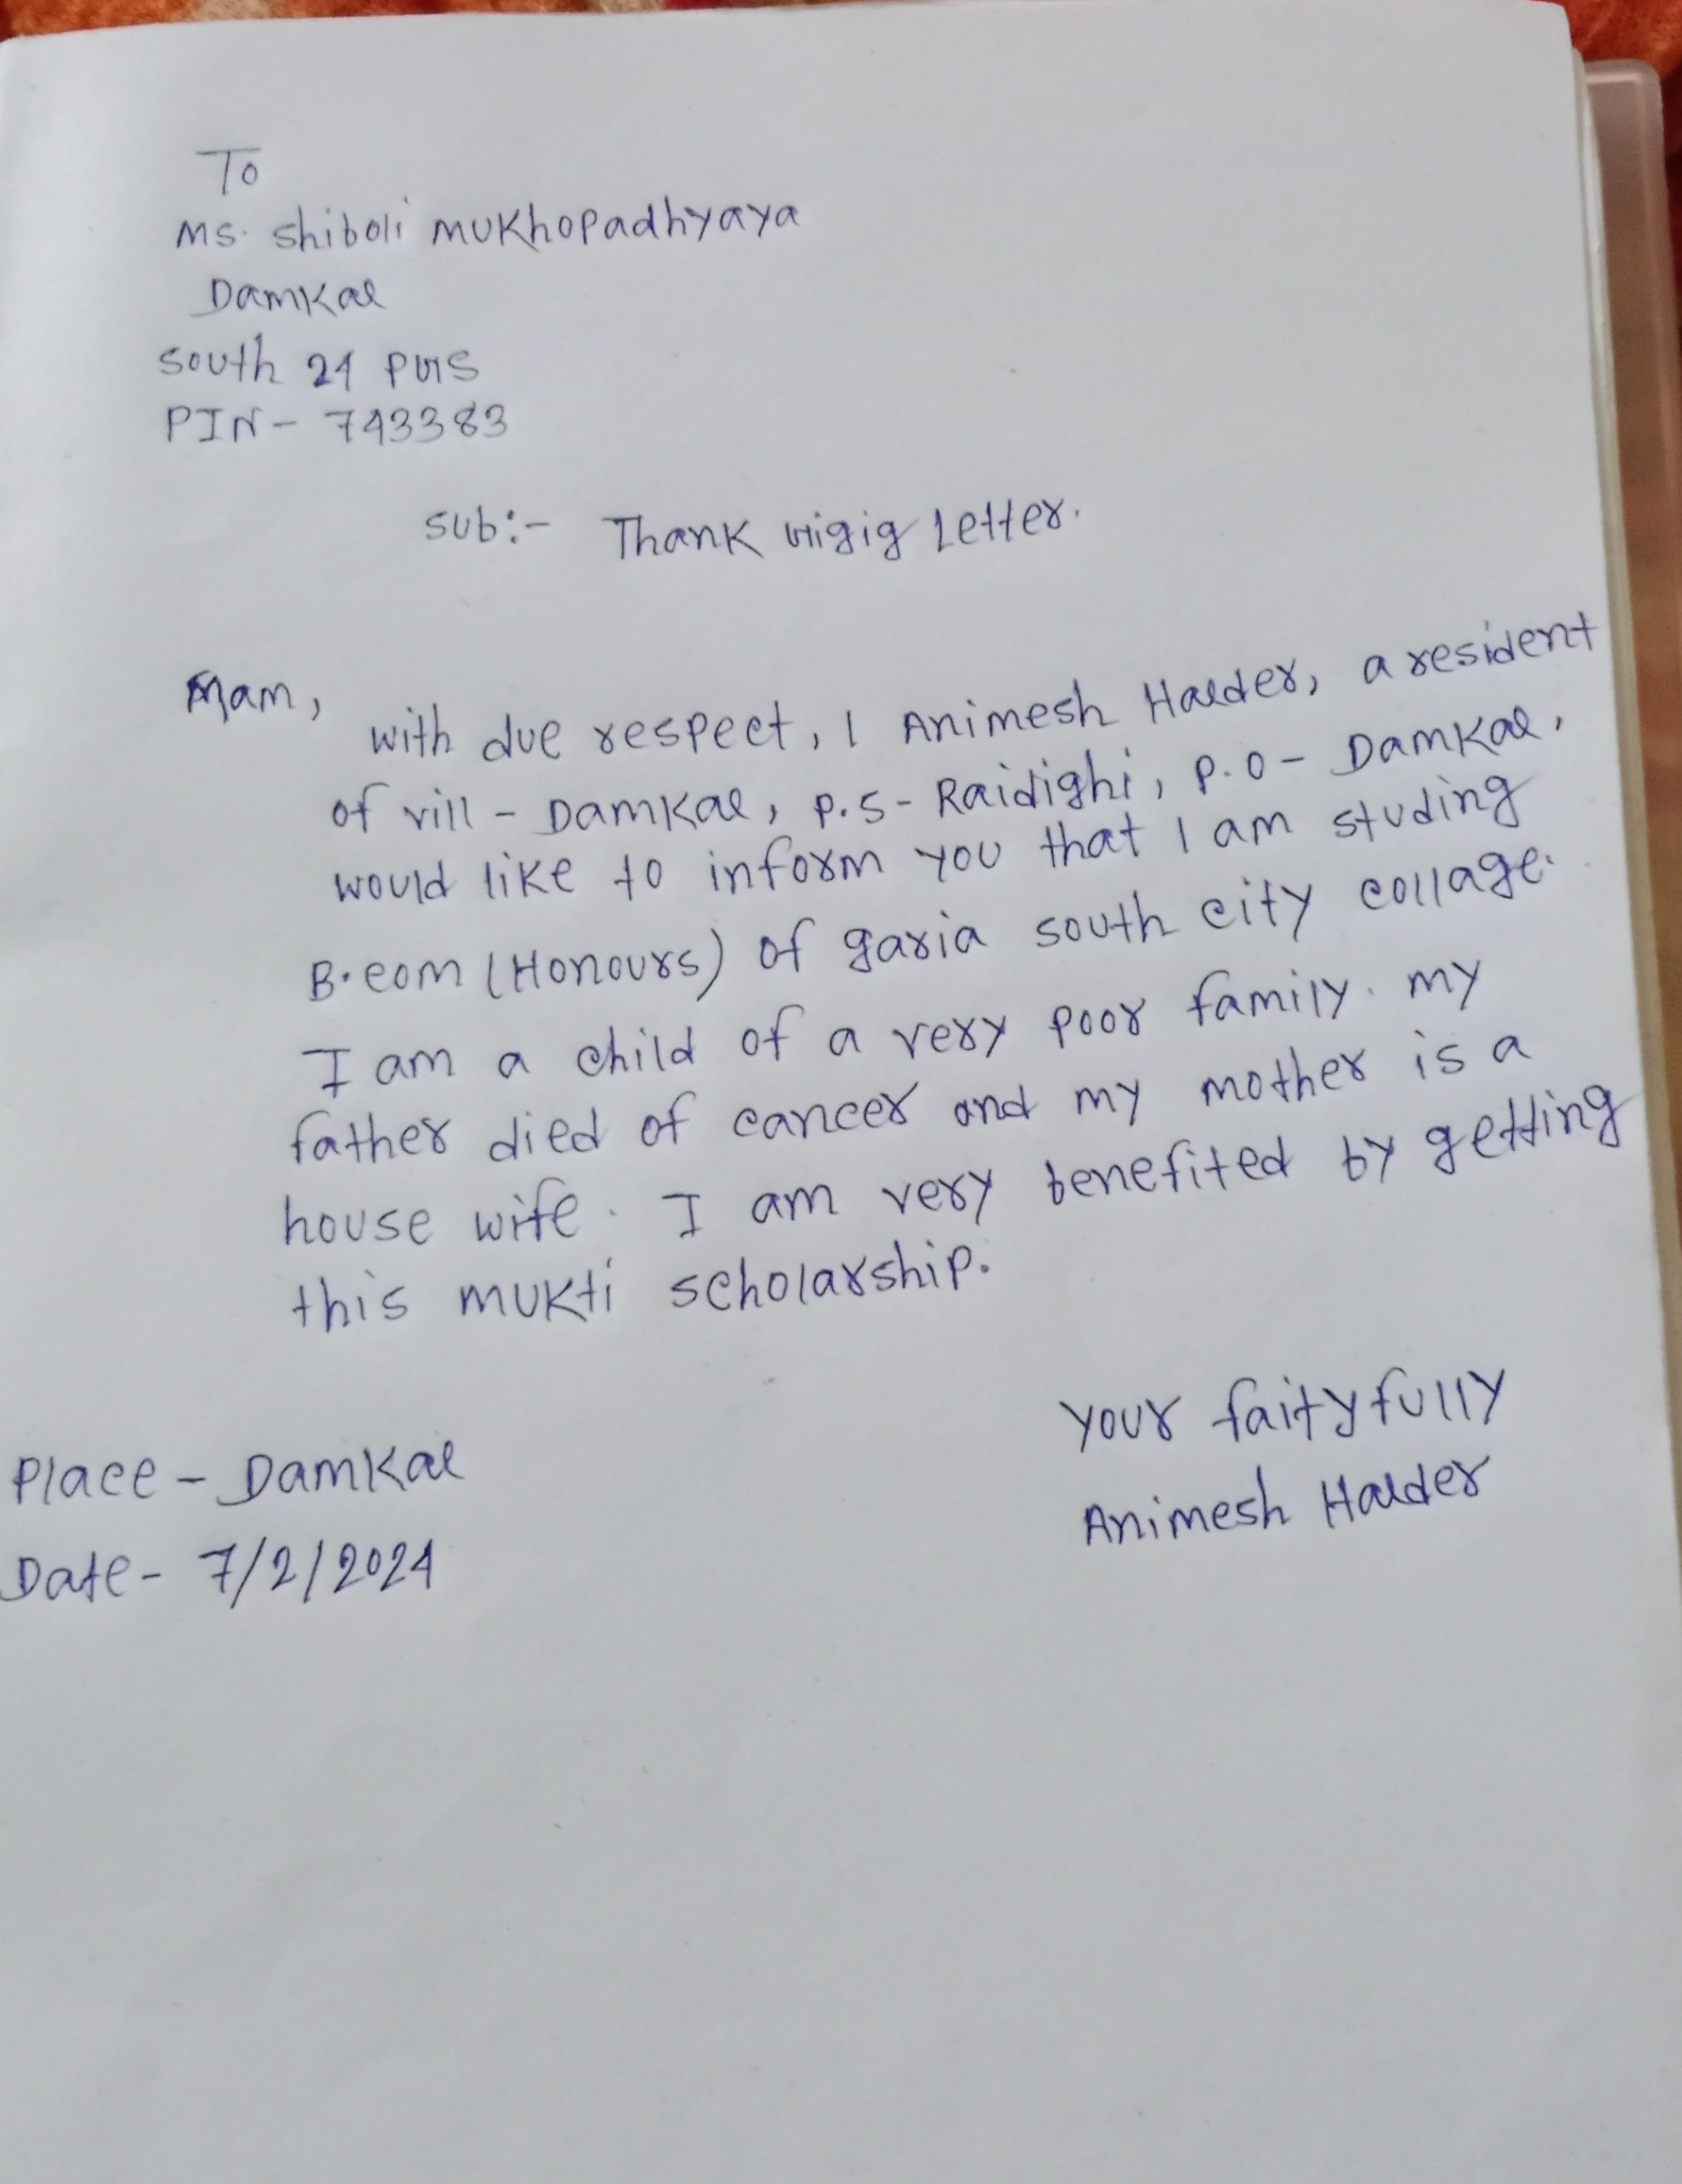 To
Ms. Shiboli Mukhopadhyaya
Damkal
South 24 PGS
PIN- 743383
Sub:- Thank gigig Letter.
Mam,
with due respect, I Animesh Halder, a resident
of vill - Damkal, P.S- Raidighi, P.O- Damkal,
would like to inform you that I am studing
B.com (Honours) of garia south city collage.
I am a child of a very poor family. my
father died of cancer and my mother is a
house wife. I am very benefited by getting
this mukti scholarship.
Your faityfully
Animesh Halder
Place - Damkal
Date - 7/2/2024